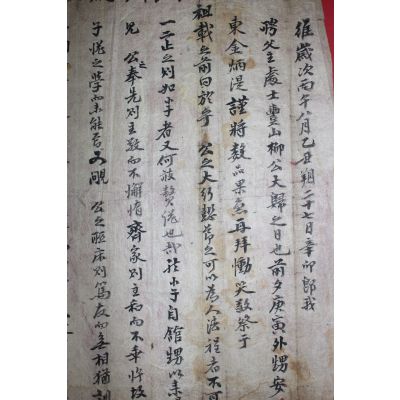 維歲次丙午八月乙丑朔二十七日辛卯郎我
聘父主處士豊山柳公大歸之日也前夕庚寅外甥安
東金炳湜謹將數品果魚再拜慟哭敬祭于
祖載之前曰於乎 公之大行懿節之可以為人法程者不可
一二止之則如小子者又何敢贅佗也部於小子自館甥以來
見 公之奉先則主敬而不懈惰齊家則主和而不乖忤故
子悅之學而未能焉又覵 公之 則篤友而無相猶訓